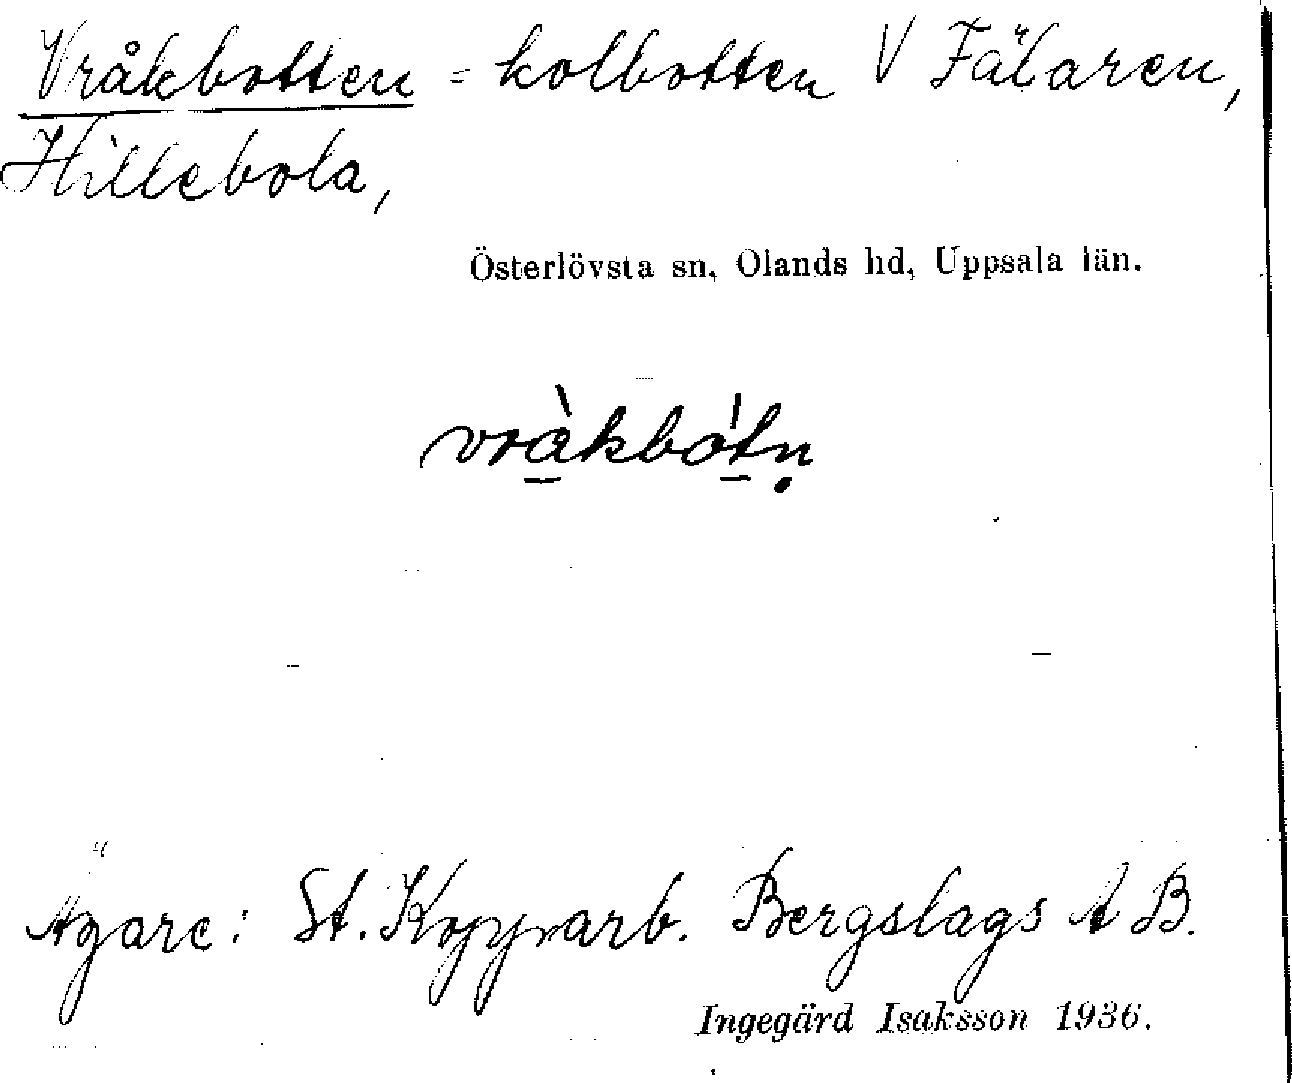 Vråkbotten = kolbotten V Fälaren,
Hillebola,
Österlövsta sn, Olands hd, Uppsala län.
vrà̲kbó̲tṇ
Ägare: St. Kopparb. Bergslags AB.
Ingegärd Isaksson 1936.